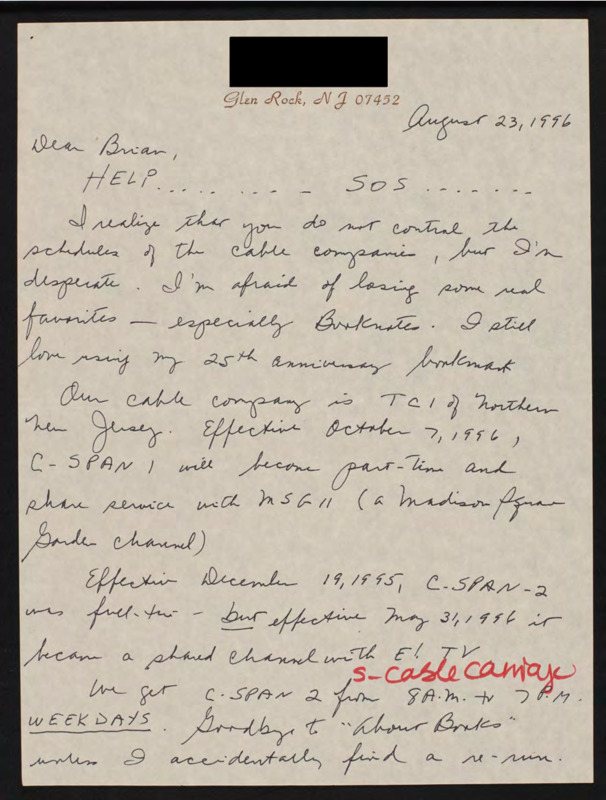 Glen Rock, NJ 07452
August 23, 1996
Dear Brian,
HELP......... – SOS.......
I realize that you do not control the
schedules of the cable companies, but I'm
desperate. I'm afraid of losing some real
favorites — especially Booknotes. I still
love using my 25th anniversary bookmark
Our cable company is TCI of Northern
New Jersey. Effective October 7, 1996,
C-SPAN 1 will become part-time and
share service with MSG II (a Madison Square
Garden channel)
Effective December 19, 1995, C-SPAN-2
was full-time – but effective May 31, 1996 it
became a shared channel with E! TV
s-cable carriage
We get C-SPAN 2 from 8 A.M. to 7 P.M.
WEEKDAYS. Goodbye to "About Books"
unless I accidentally find a re-run.